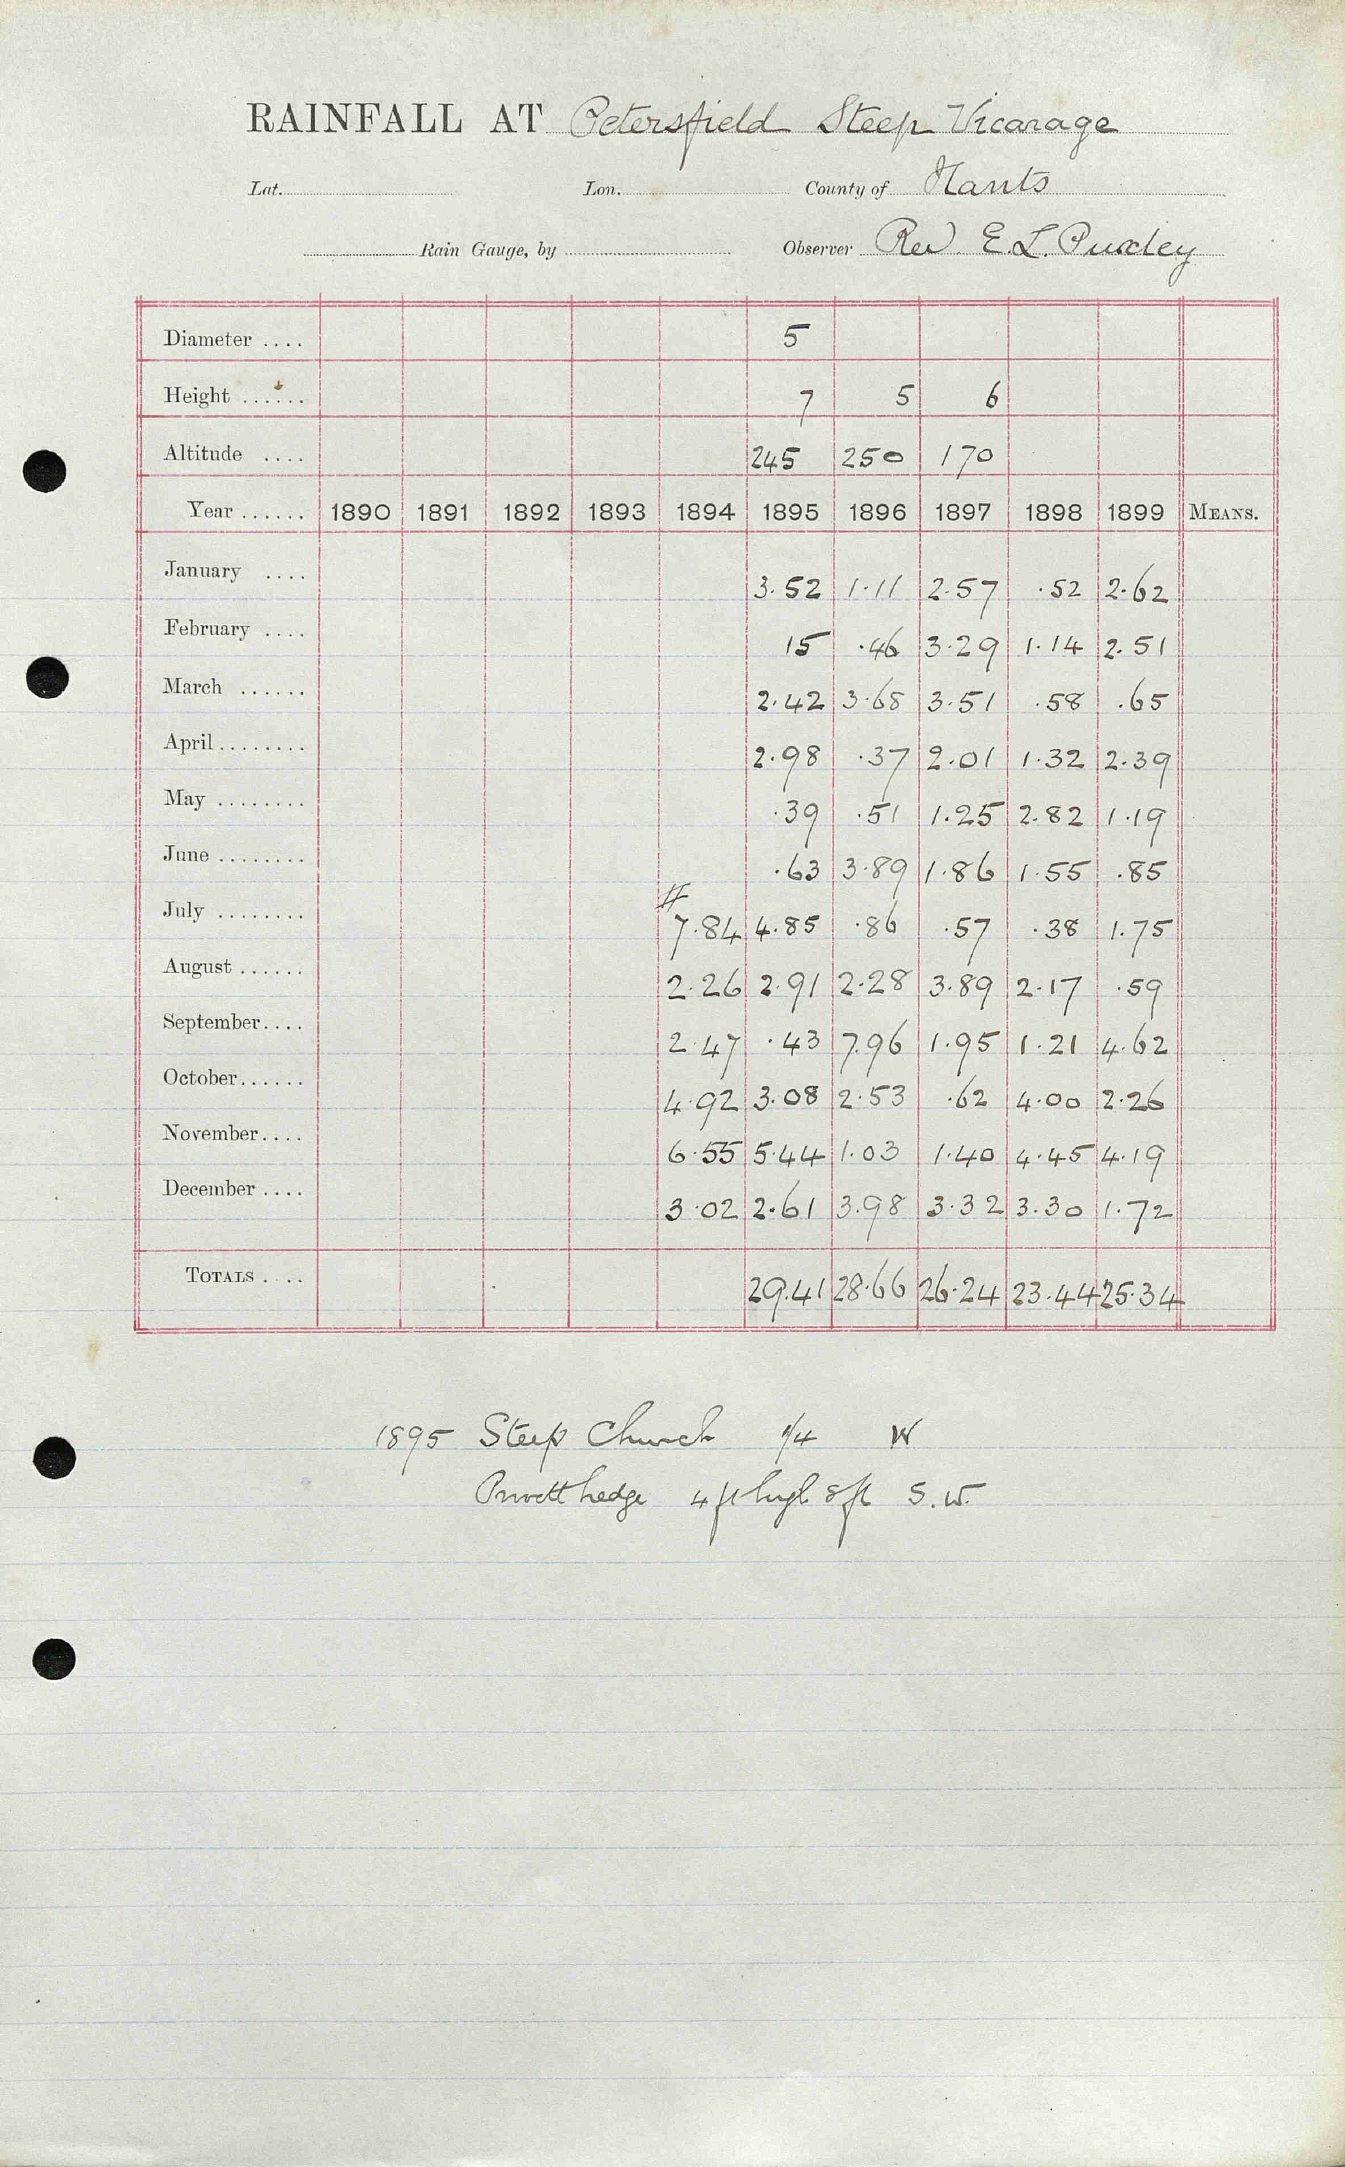 RAINFALL AT Petersfield Steep Vicarage
Lat. Lon. County of Hants
Rain Gauge, by Observer Rev E.L. Puxley
Diameter .... 5
Height ...... 7 5 6
Altitude .... 245 250 170
Year ...... 1890 1891 1892 1893 1894 1895 1896 1897 1898 1899 MEANS.
January .... 3.52 1.11 2.57 .52 2.62
February .... 15 .46 3.29 1.14 2.51
March ...... 2.42 3.68 3.51 .58 .65
April ........ 2.98 .37 2.01 1.32 2.39
May ........ .39 .51 1.25 2.82 1.19
June ........ .63 3.89 1.86 1.55 .85
July ........ # 7.84 4.85 .86 .57 .38 1.75
August ...... 2.26 2.91 2.28 3.89 2.17 .59
September.... 2.47 .43 7.96 1.95 1.21 4.62
October...... 4.92 3.08 2.53 .62 4.00 2.26
November.... 6.55 5.44 1.03 1.40 4.45 4.19
December .... 3.02 2.61 3.98 3.32 3.30 1.72
TOTALS .... 29.41 28.66 26.24 23.44 25.34
1895 Steep Church 1/4 W
Privett hedge 4 ft high 8 ft S.W.